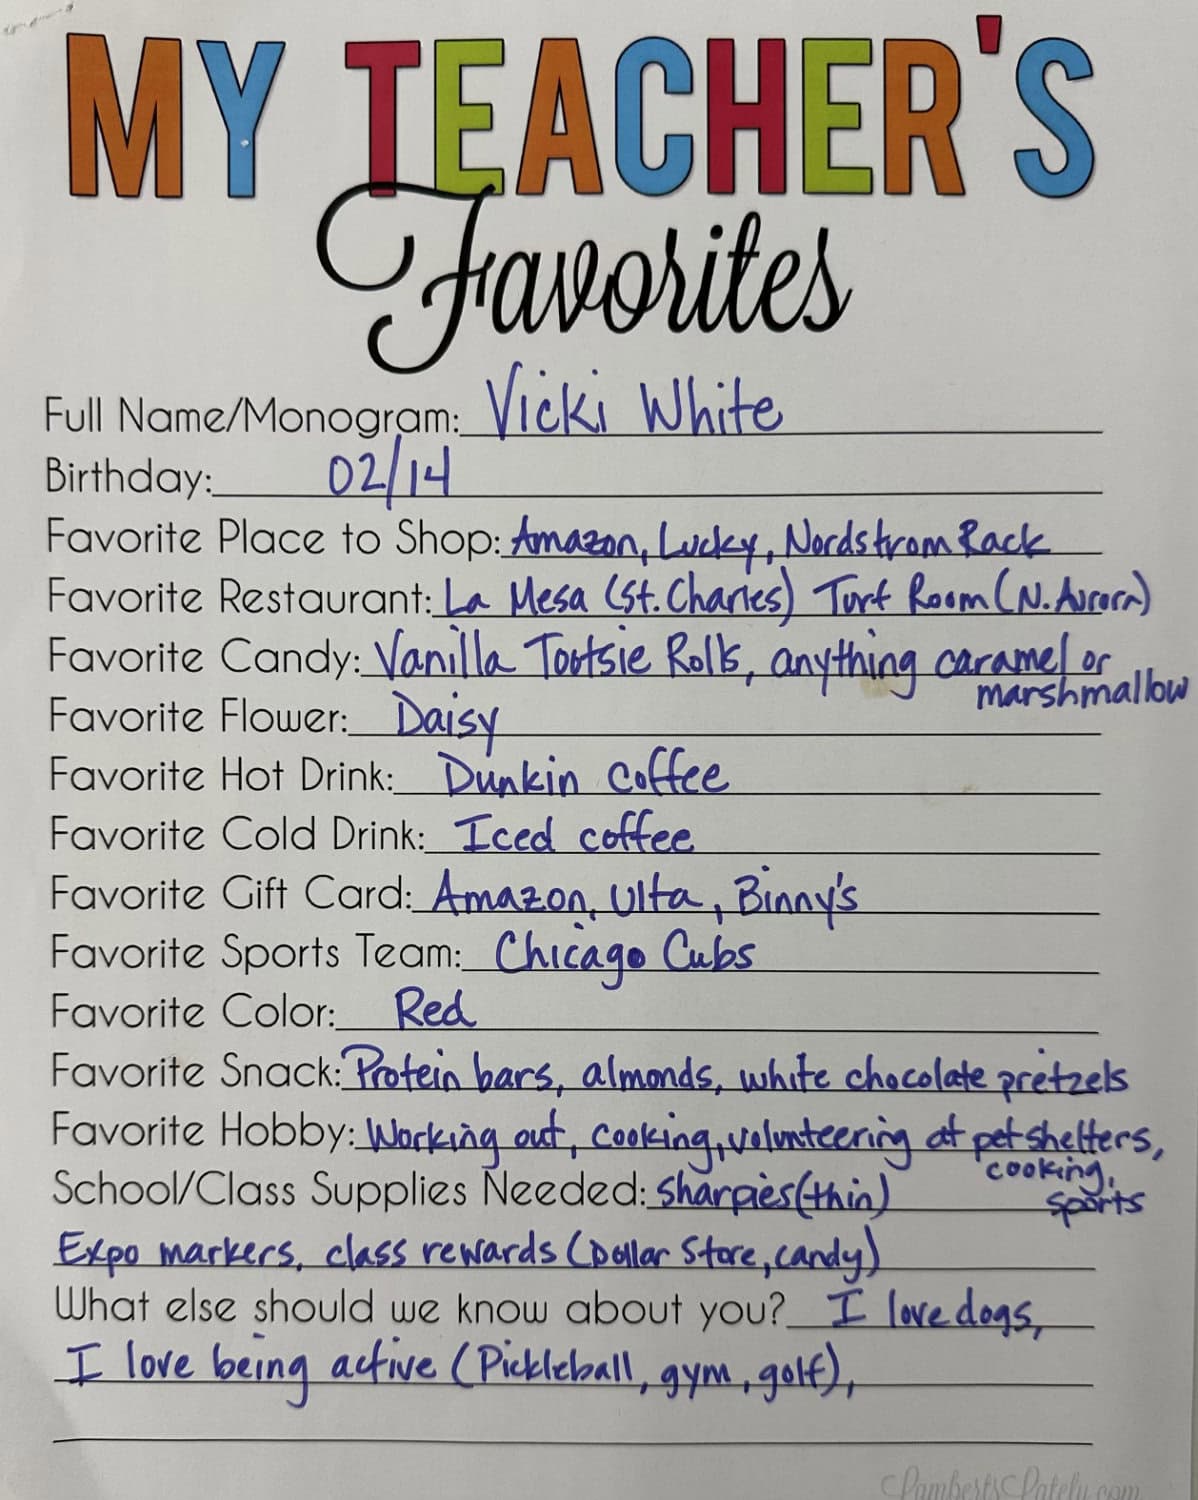 MY TEACHER'S
Favorites
Full Name/Monogram: Vicki White
Birthday: 02/14
Favorite Place to Shop: Amazon, Lucky, Nordstrom Rack
Favorite Restaurant: La Mesa (St. Charles) Turf Room (N. Aurora)
Favorite Candy: Vanilla Tootsie Rolls, anything caramel or
marshmallow
Favorite Flower: Daisy
Favorite Hot Drink: Dunkin coffee
Favorite Cold Drink: Iced coffee
Favorite Gift Card: Amazon, Ulta, Binny's
Favorite Sports Team: Chicago Cubs
Favorite Color: Red
Favorite Snack: Protein bars, almonds, white chocolate pretzels
Favorite Hobby: Working out, cooking, volunteering at pet shelters,
cooking,
sports
School/Class Supplies Needed: sharpies (thin)
Expo markers, class rewards (Dollar Store, candy)
What else should we know about you? I love dogs,
I love being active (Pickleball, gym, golf),
LambertsLately.com